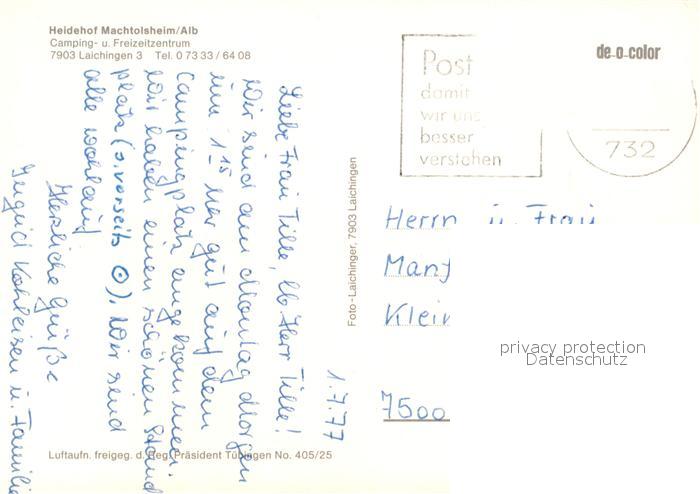 Heidehof Machtolsheim/Alb
Camping- u. Freizeitzentrum
7903 Laichingen 3 Tel. 0 73 33 / 64 08
1.7.77
Liebe Frau Tille, lb Herr Tille!
Wir sind am Montag Morgen
um 1 15 Uhr gut auf dem
Campingplatz angekommen.
Wir haben einen schönen Stand
platz (s. vorseits ⊙). Wir sind
alle wohlauf
Herzliche Grüße
Ingrid Kohleisen u. Familie
Luftaufn. freigeg. d. Reg. Präsident Tübingen No. 405/25
Foto-Laichinger, 7903 Laichingen
Post
damit
wir uns
besser
verstehen
de-o-color
732
Herrn u. Frau
Manf
Klein
7500
privacy protection
Datenschutz